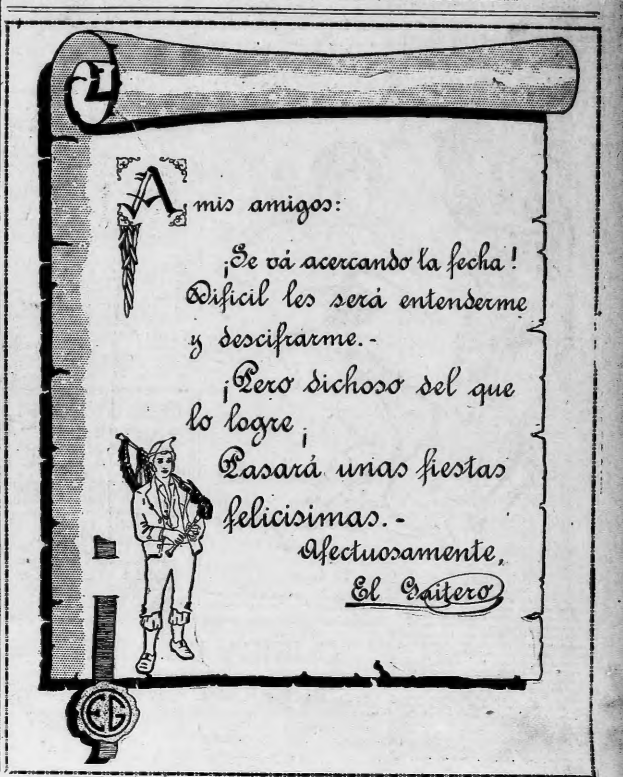 A mis amigos:
¡Se vá acercando la fecha!
Dificil les será entenderme
y descifrarme.-
¡Pero dichoso del que
lo logre¡
Pasará unas fiestas
felicisimas.-
Afectuosamente,
El Gaitero
EG